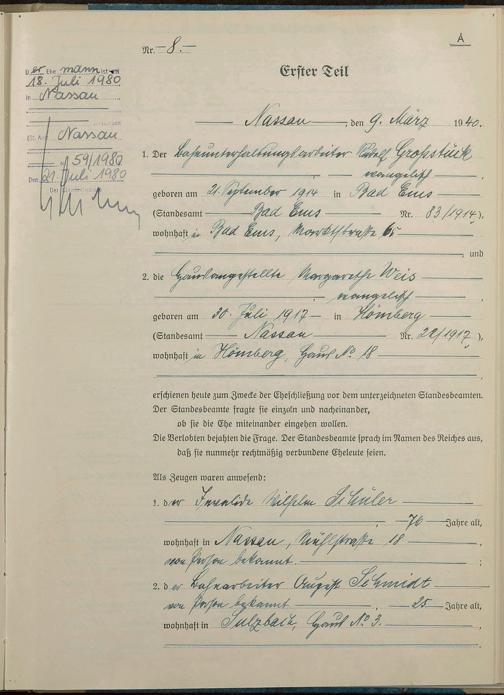 A
Nr. 8.
Erster Teil
Der Ehemann ist am
18. Juli 1980
in Nassau
Nassau
59/1980
Den 21. Juli 1980
Nassau, den 9. März 1940.
1. Der Bahnunterhaltungsarbeiter Rudolf Großstück
evangelisch
geboren am 21. September 1914 in Bad Ems
(Standesamt Bad Ems Nr. 83/1914),
wohnhaft in Bad Ems, Marktstraße 65
, und
2. die Hausangestellte Margarethe Weis
, evangelisch
geboren am 30. Juli 1917 in Hömberg
(Standesamt Nassau Nr. 22/1917),
wohnhaft in Hömberg, Haus No 18
erschienen heute zum Zwecke der Eheschließung vor dem unterzeichneten Standesbeamten.
Der Standesbeamte fragte sie einzeln und nacheinander,
ob sie die Ehe miteinander eingehen wollen.
Die Verlobten bejahten die Frage. Der Standesbeamte sprach im Namen des Reiches aus,
daß sie nunmehr rechtmäßig verbundene Eheleute seien.
Als Zeugen waren anwesend:
1. der Invalide Wilhelm Schüler
, 70 Jahre alt,
wohnhaft in Nassau, Mühlstraße 18
von Person bekannt ;
2. der Bahnarbeiter August Schmidt
von Person bekannt , 25 Jahre alt,
wohnhaft in Sulzbach, Haus No 3.